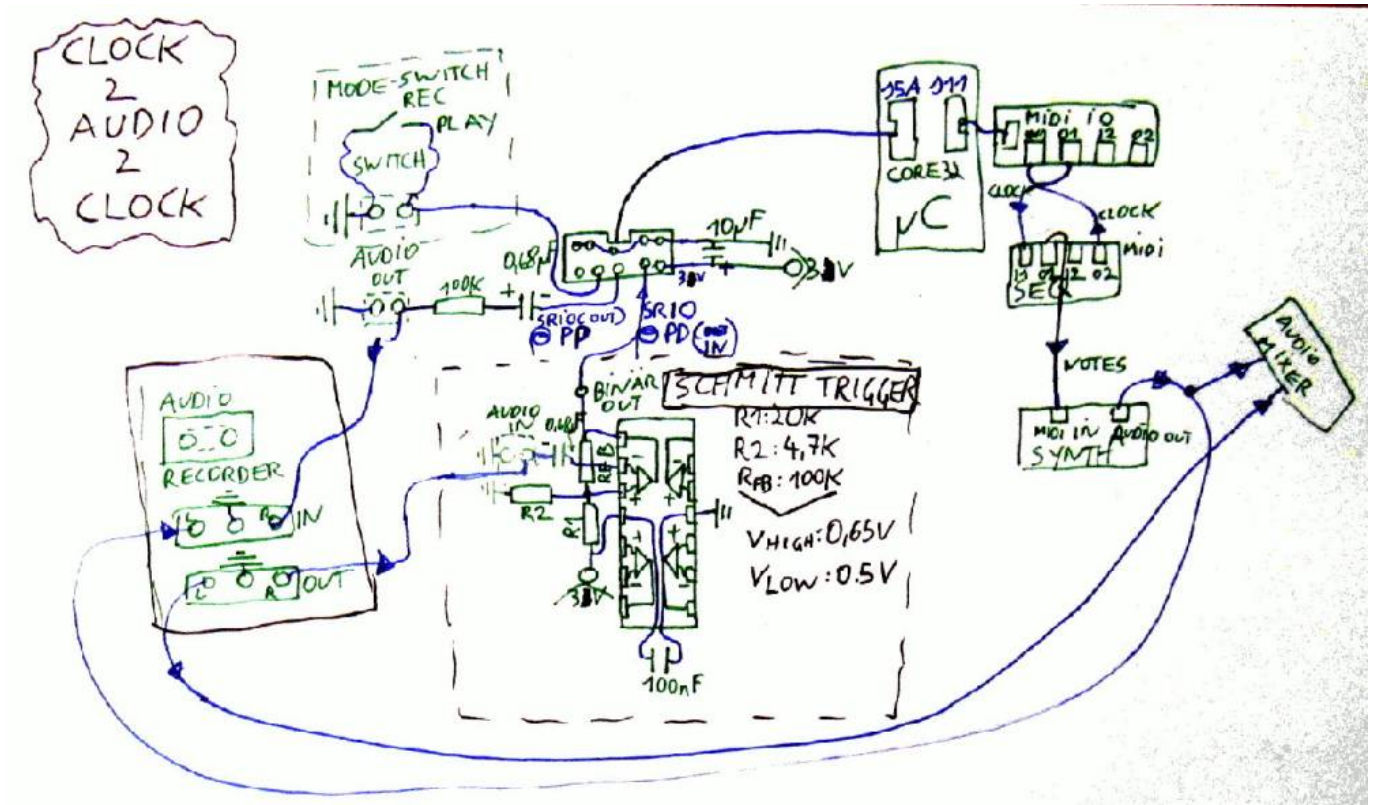 CLOCK
2
AUDIO
2
CLOCK
MODE-SWITCH
REC
PLAY
SWITCH
AUDIO
OUT
100K
0,68µF
+
-
10µF
+
SRIO (OUT)
PP
SRIO
PD
IN
J5A J11
CORE32
µC
MIDI IO
O1 I2 O2
CLOCK
CLOCK
MIDI
I1 O1 I2 O2
SEQ
NOTES
MIDI IN AUDIO OUT
SYNTH
AUDIO
MIXER
AUDIO
RECORDER
L R IN
L R OUT
BINAR
OUT
AUDIO
IN
0,68µF
RFB
R2
R1
-
+
-
+
+
-
+
-
100nF
SCHMITT TRIGGER
R1:20K
R2:4,7K
RFB:100K
VHIGH:0,65V
VLOW:0.5V